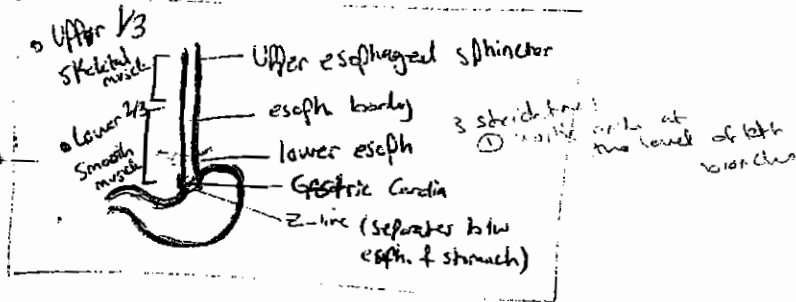 Upper 1/3
Skeletal muscle
Lower 2/3
Smooth muscle
Upper esophageal sphincter
esoph. body
lower esoph
Gastric Cardia
Z-line (separates b/w
esoph. & stomach)
3
① at
the level of